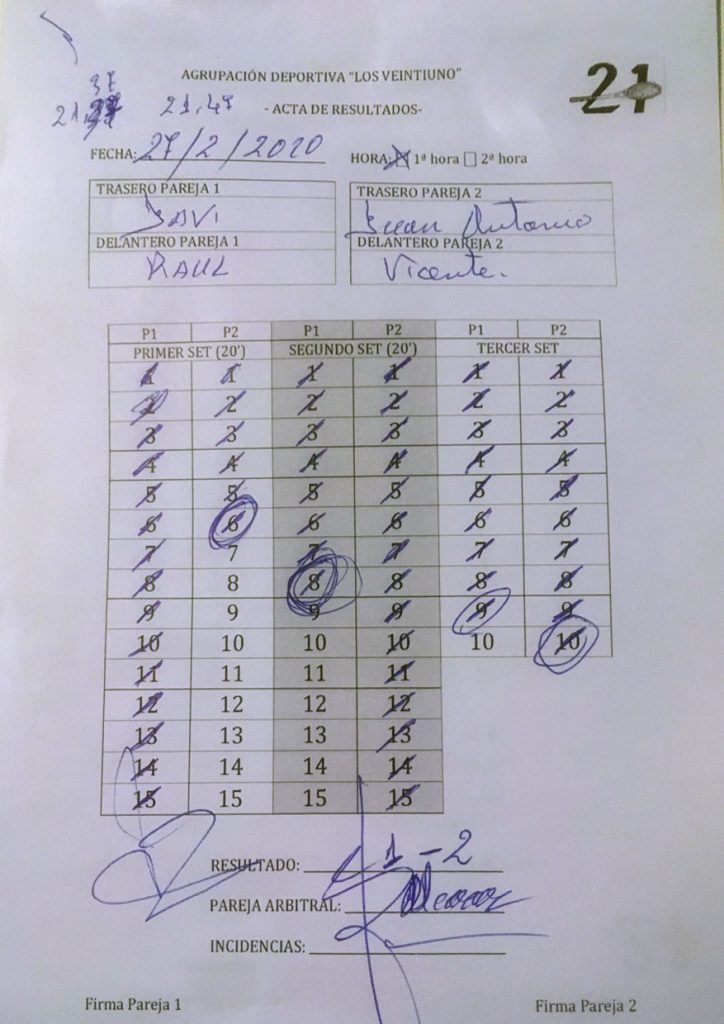 AGRUPACIÓN DEPORTIVA "LOS VEINTIUNO"
21
37
21,
21.47
- ACTA DE RESULTADOS-
FECHA: 27/2/2020 HORA: 1ª hora 2ª hora
TRASERO PAREJA 1 TRASERO PAREJA 2
JAVI Juan Antonio
DELANTERO PAREJA 1 DELANTERO PAREJA 2
RAUL Vicente.
P1 P2 P1 P2 P1 P2
PRIMER SET (20') SEGUNDO SET (20') TERCER SET
1 1 1 1 1 1
2 2 2 2 2 2
3 3 3 3 3 3
4 4 4 4 4 4
5 5 5 5 5 5
6 6 6 6 6 6
7 7 7 7 7 7
8 8 8 8 8 8
9 9 9 9 9 9
10 10 10 10 10 10
11 11 11 11
12 12 12 12
13 13 13 13
14 14 14 14
15 15 15 15
RESULTADO: 1-2
PAREJA ARBITRAL:
INCIDENCIAS:
Firma Pareja 1 Firma Pareja 2